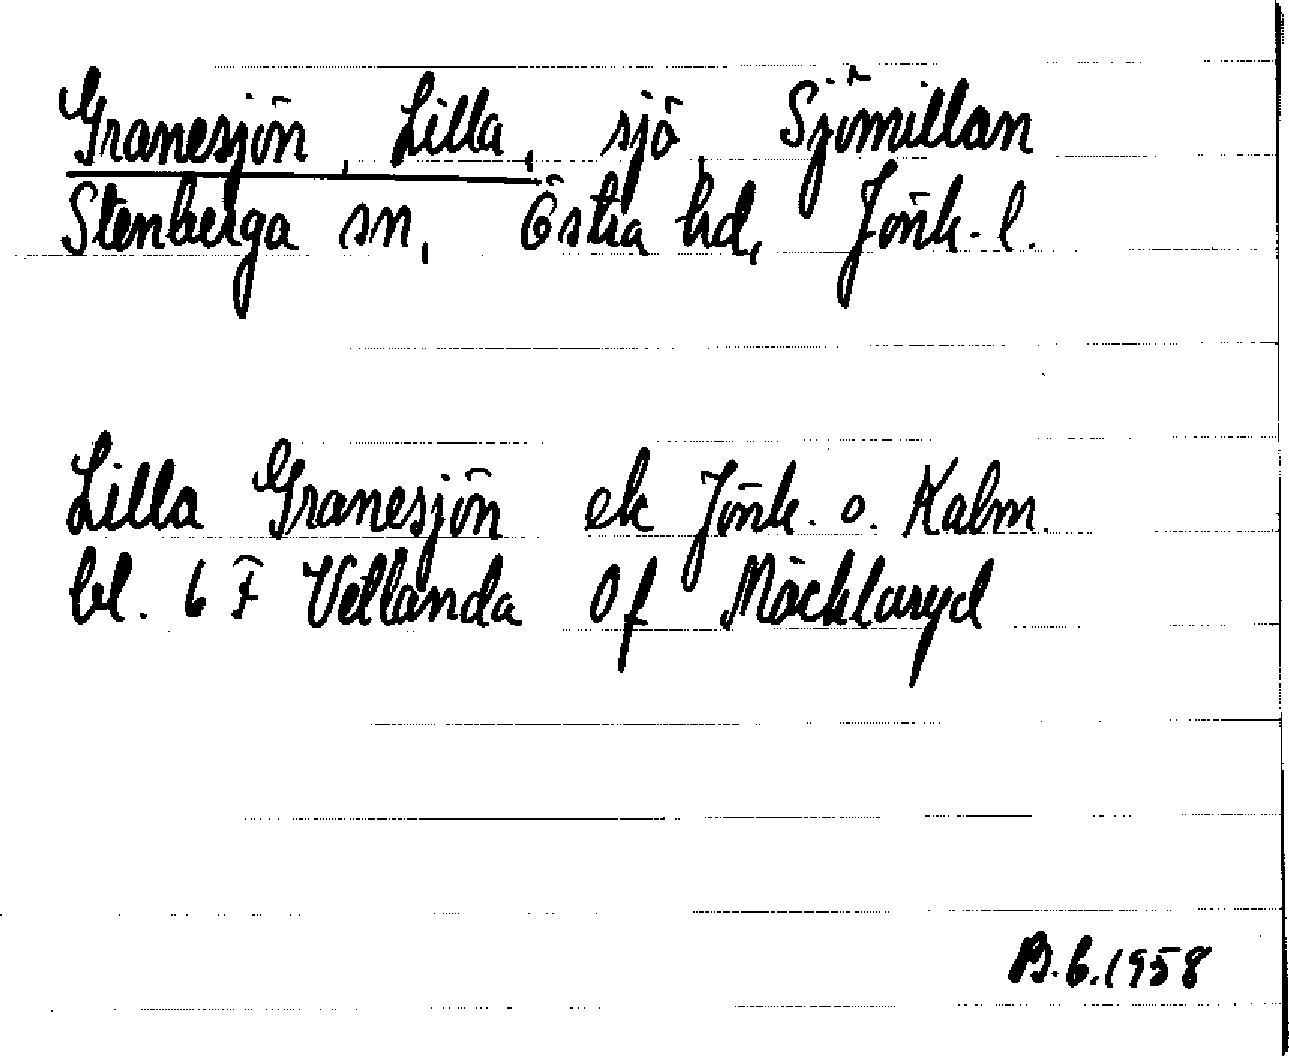 Granesjön, Lilla, sjö, Sjömillan
Stenberga sn, Östra hd, Jönk. l.
Lilla Granesjön ek Jönk. o. Kalm.
bl. 6 F Vetlanda 0f Mäcklaryd
B.6.1958